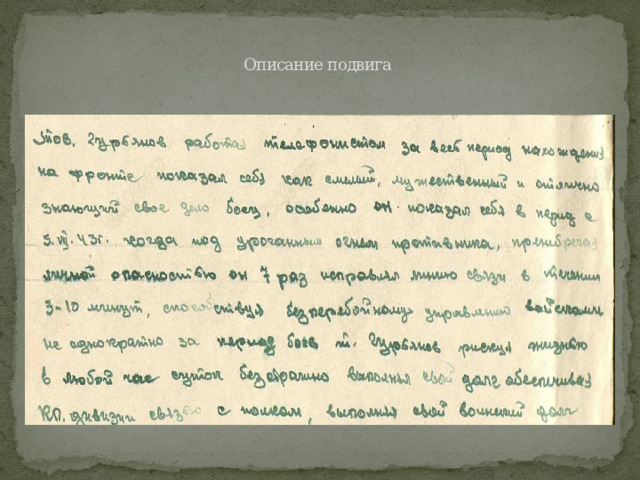 Описание подвига
Тов. Гурьянов работая телефонистом за весь период нахождения
на фронте показал себя как смелый, мужественный и отлично
знающий свое дело боец, особенно он показал себя в период с
5.VII.43г. когда под ураганным огнем противника, пренебрегая
личной опасностью он 7 раз исправлял линию связи в течении
3-10 минут, способствуя безперебойному управлению войсками
не однократно за период боев т. Гурьянов рискуя жизнью
в любой час суток безстрашно выполнял свой долг обеспечивая
КП. дивизии связью с полком, выполнял свой воинский долг